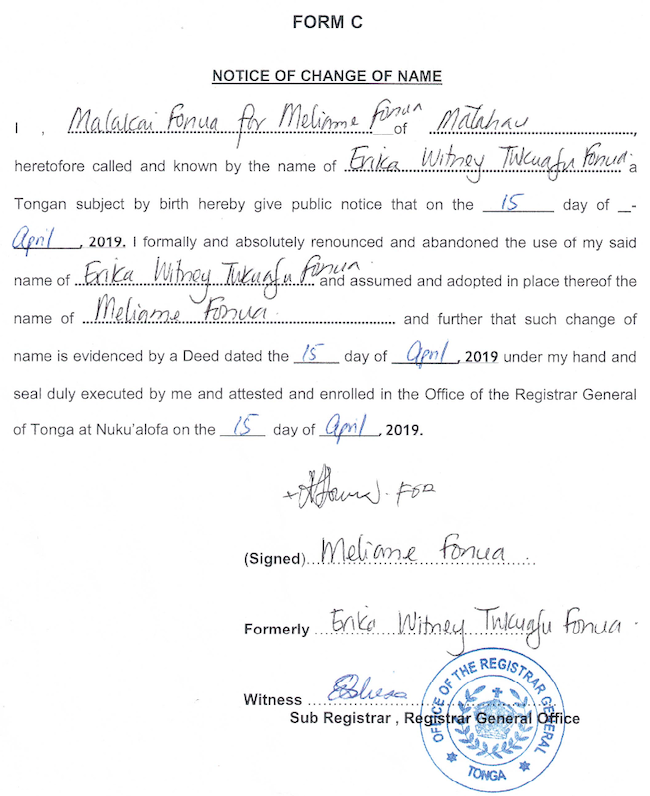 FORM C
NOTICE OF CHANGE OF NAME
I , Malakai Fonua for Meliame Fonua of Matahau,
heretofore called and known by the name of Erika Witney Tukuafu Fonua. a
Tongan subject by birth hereby give public notice that on the 15 day of -
April, 2019. I formally and absolutely renounced and abandoned the use of my said
name of Erika Witney Tukuafu Fonua and assumed and adopted in place thereof the
name of Meliame Fonua. and further that such change of
name is evidenced by a Deed dated the 15 day of April, 2019 under my hand and
seal duly executed by me and attested and enrolled in the Office of the Registrar General
of Tonga at Nuku'alofa on the 15 day of April, 2019.
FOR
(Signed) Meliame Fonua
Formerly Erika Witney Tukuafu Fonua.
Witness
Sub Registrar , Registrar General Office
OFFICE OF THE REGISTRAR GENERAL
TONGA